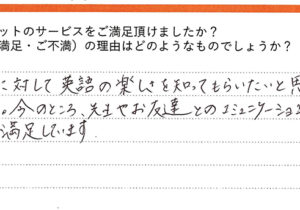 ットのサービスをご満足頂けましたか？
満足・ご不満）の理由はどのようなものでしょうか？
に対して英語の楽しさを知ってもらいたいと思
。今のところ、先生やお友達とのコミュニケーション
満足しています